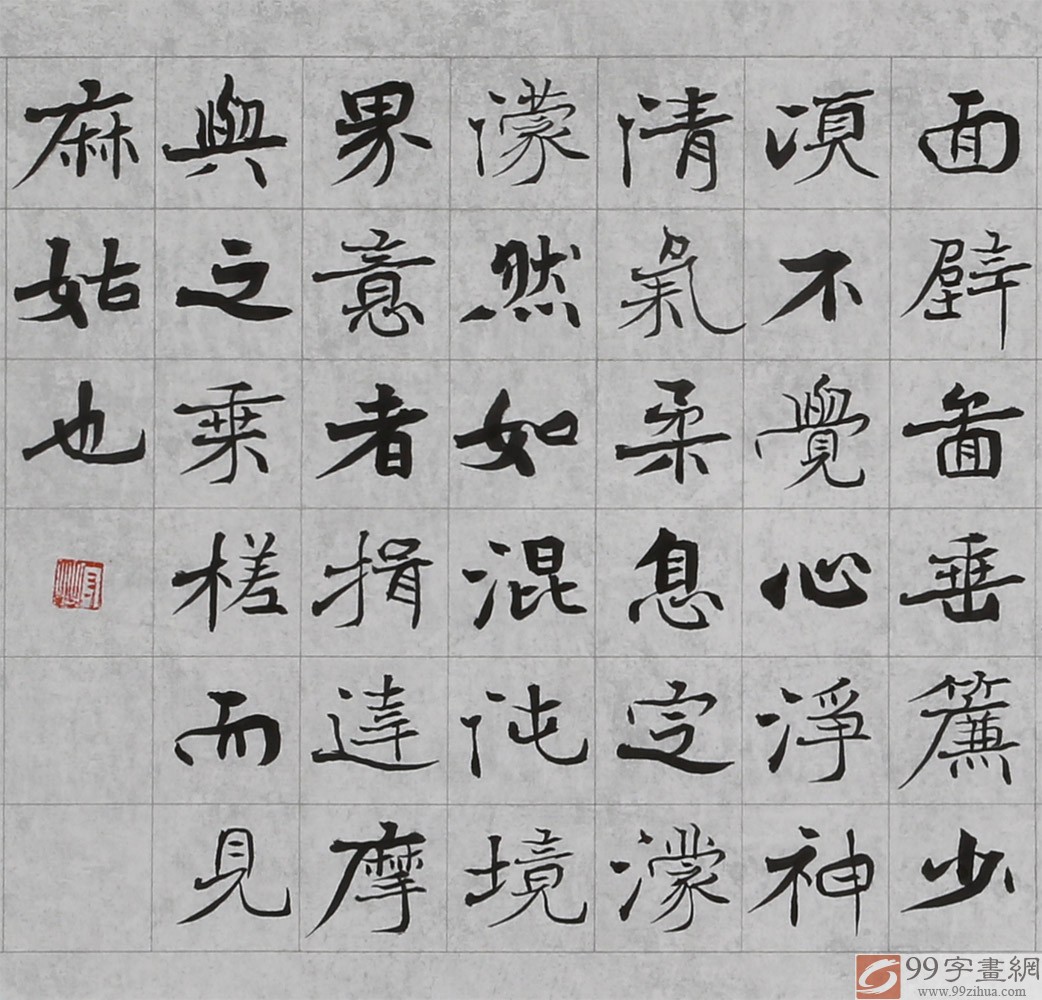 面壁啚垂簾少
頃不覺心淨神
清氣柔息定濛
濛然如混沌境
界意者揖達摩
與之乘槎而見
麻姑也
99字畫網
www.99zihua.com